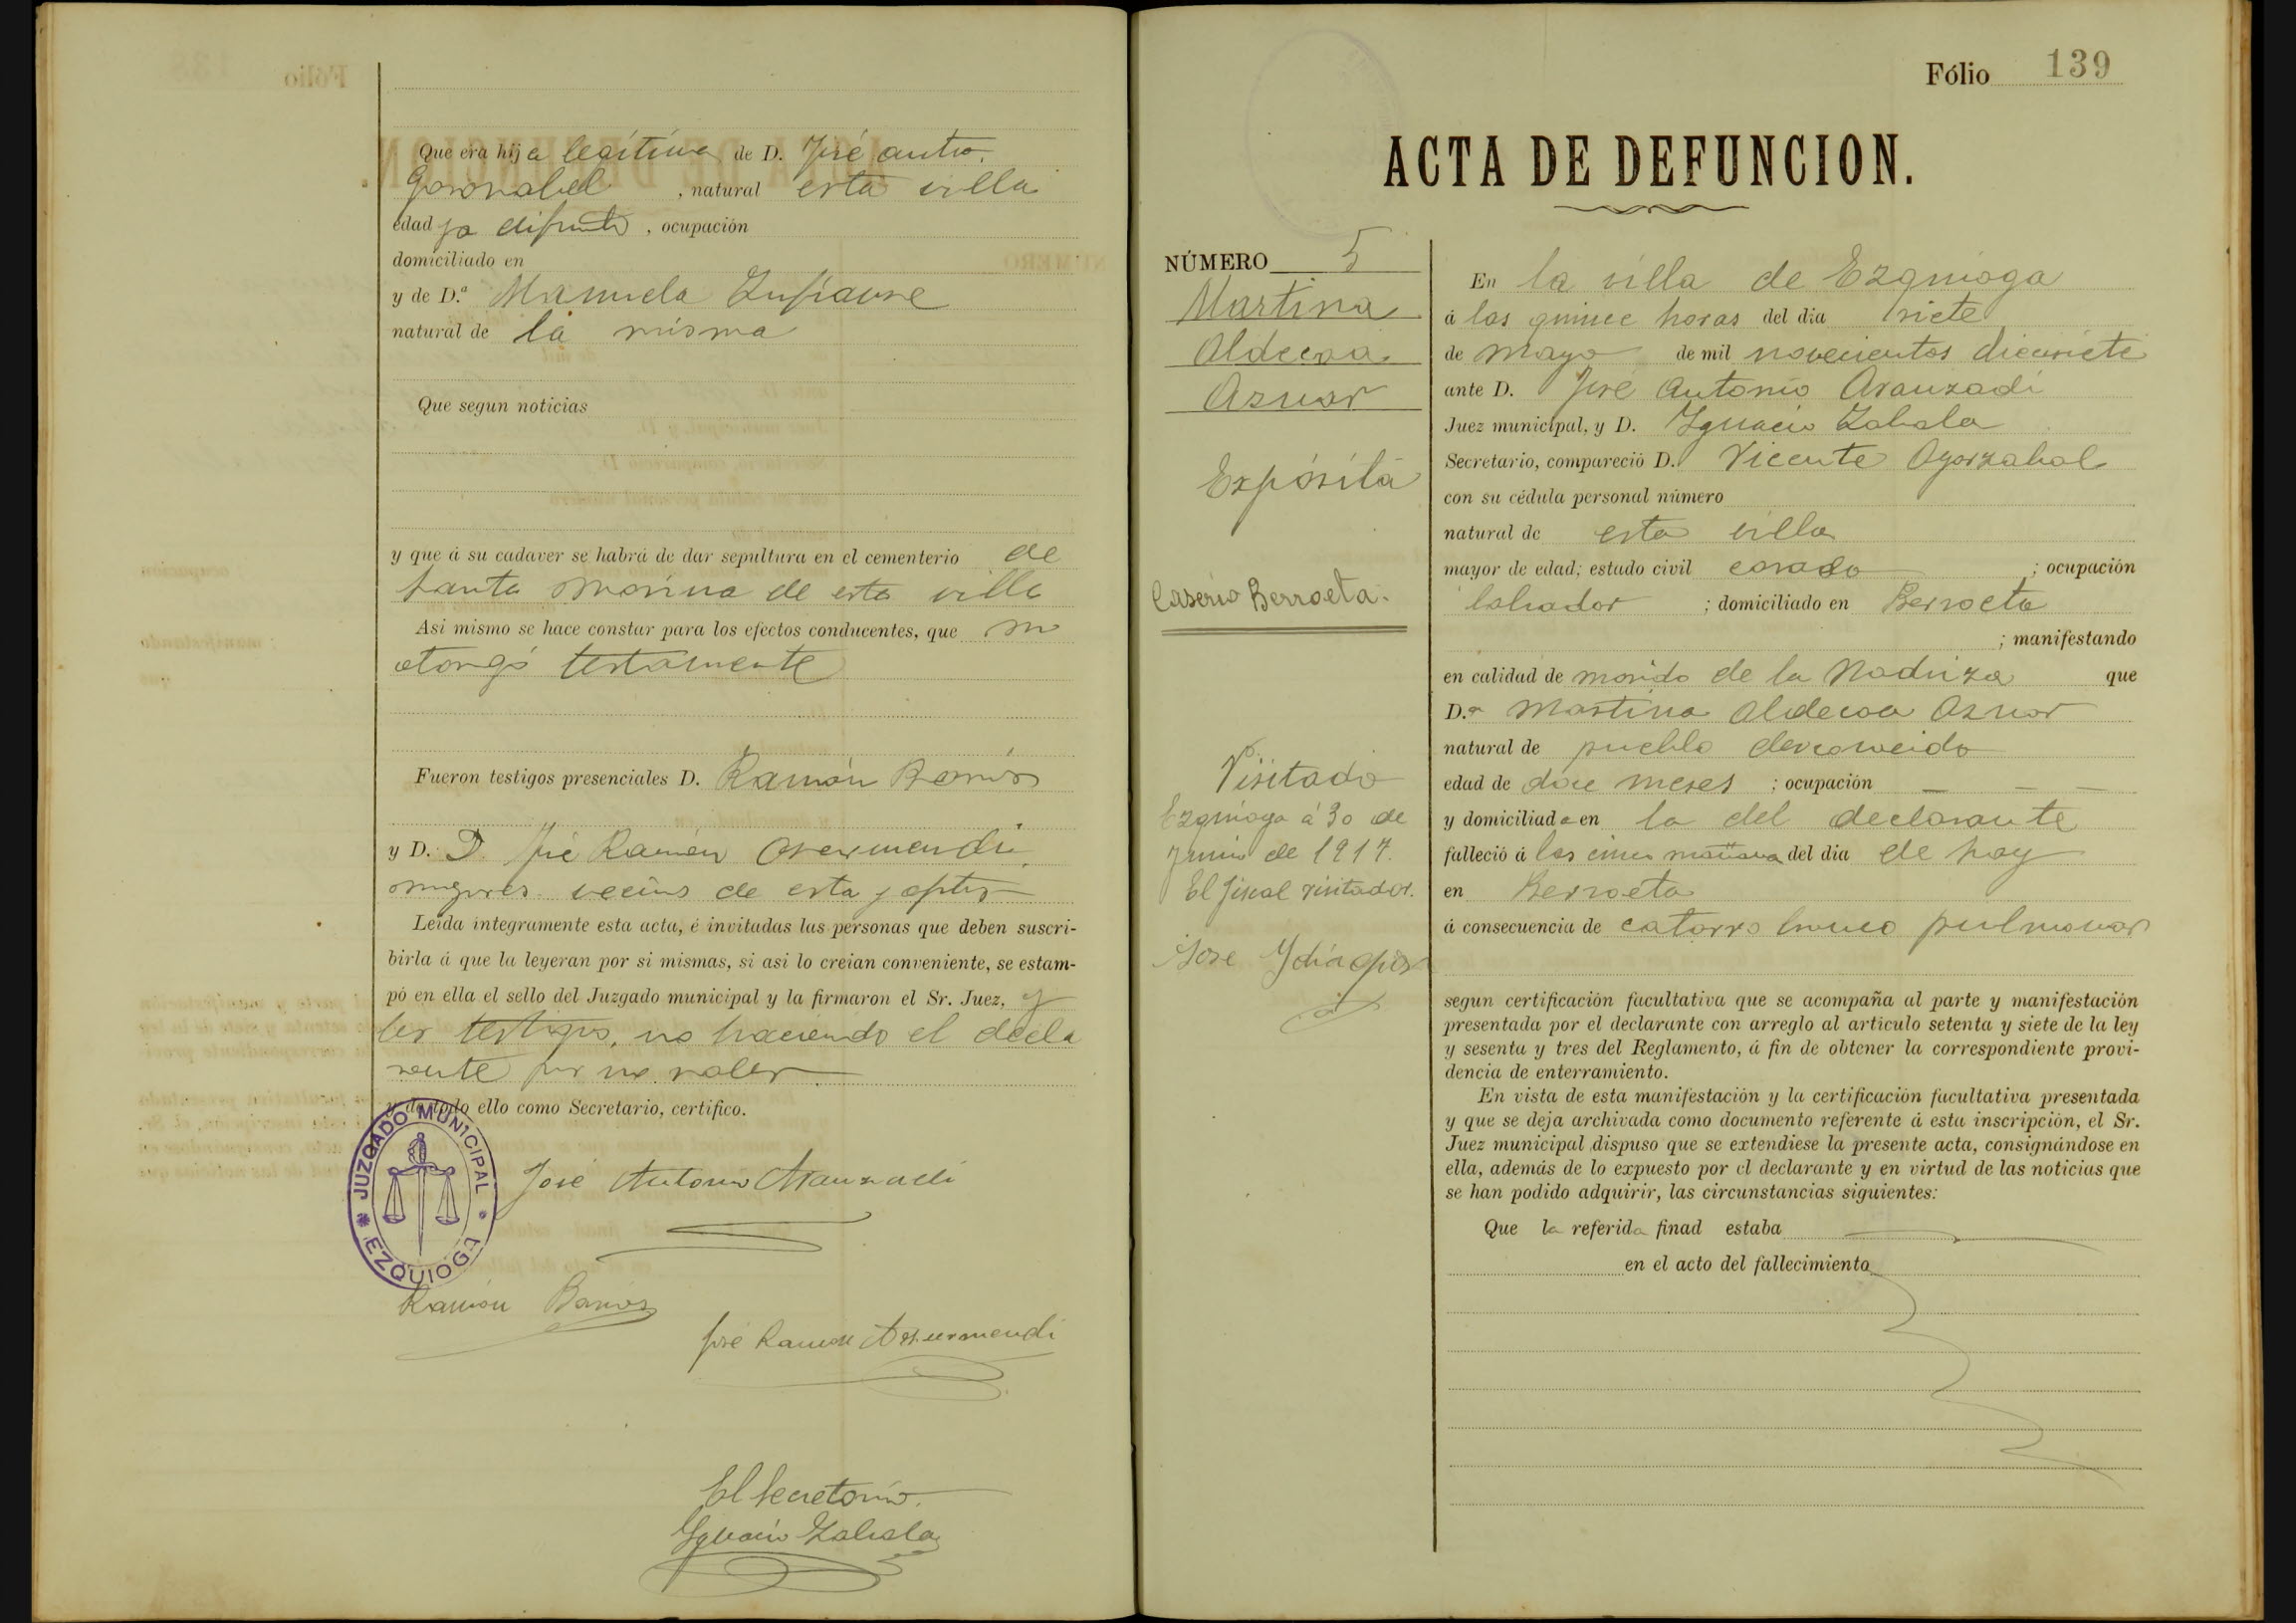 Que era hija legítima de D. José Antro.
, natural esta villa
edad ya difunto, ocupación
domiciliado en
y de D.ª Manuela
natural de la misma
Que segun noticias
y que á su cadaver se habrá de dar sepultura en el cementerio de
Santa Marina de esta villa
Asi mismo se hace constar para los efectos conducentes, que no
otorgó testamente
Fueron testigos presenciales D. Ramón
y D. D. José Ramón Asurmendi
mayores vecins de esta y aptos
Leida integramente esta acta, é invitadas las personas que deben suscri-
birla á que la leyeran por si mismas, si asi lo creian conveniente, se estam-
pó en ella el sello del Juzgado municipal y la firmaron el Sr. Juez, y
los testigos, no haciendo el decla
rante por no saber
y de todo ello como Secretario, certifico.
JUZGADO MUNICIPAL
EZQUIOGA
José Antonio Aranzadi
Ramón
José Ramon Asurmendi
El Secretario.
Ygnacio Zabala
Fólio 139
ACTA DE DEFUNCION.
NÚMERO 5
Martina
Aldecoa
Aznar
Expósita
Caserío Berroeta.
Visitado
Ezquioga á 30 de
Junio de 1917.
El fiscal visitador.
Jose Ydiaquez
En la villa de Ezquioga
á las quince horas del dia siete
de Mayo de mil novecientos diecisiete
ante D. José Antonio Aranzadi
Juez municipal, y D. Ygnacio Zabala
Secretario, compareció D. Vicente Oyarzabal
con su cédula personal número
natural de esta villa
mayor de edad; estado civil casado ; ocupación
labrador ; domiciliado en Berroeta
; manifestando
en calidad de marido de la Nodriza que
D.ª Martina Aldecoa Aznar
natural de pueblo desconocido
edad de doce meses ; ocupación — — —
y domiciliada en la del declarante
falleció á las cinco mañana del dia de hoy
en Berroeta
á consecuencia de catarro bronco pulmonar
segun certificación facultativa que se acompaña al parte y manifestación
presentada por el declarante con arreglo al articulo setenta y siete de la ley
y sesenta y tres del Reglamento, á fin de obtener la correspondiente provi-
dencia de enterramiento.
En vista de esta manifestación y la certificación facultativa presentada
y que se deja archivada como documento referente á esta inscripción, el Sr.
Juez municipal dispuso que se extendiese la presente acta, consignándose en
ella, además de lo expuesto por el declarante y en virtud de las noticias que
se han podido adquirir, las circunstancias siguientes:
Que la referida finad estaba
en el acto del fallecimiento